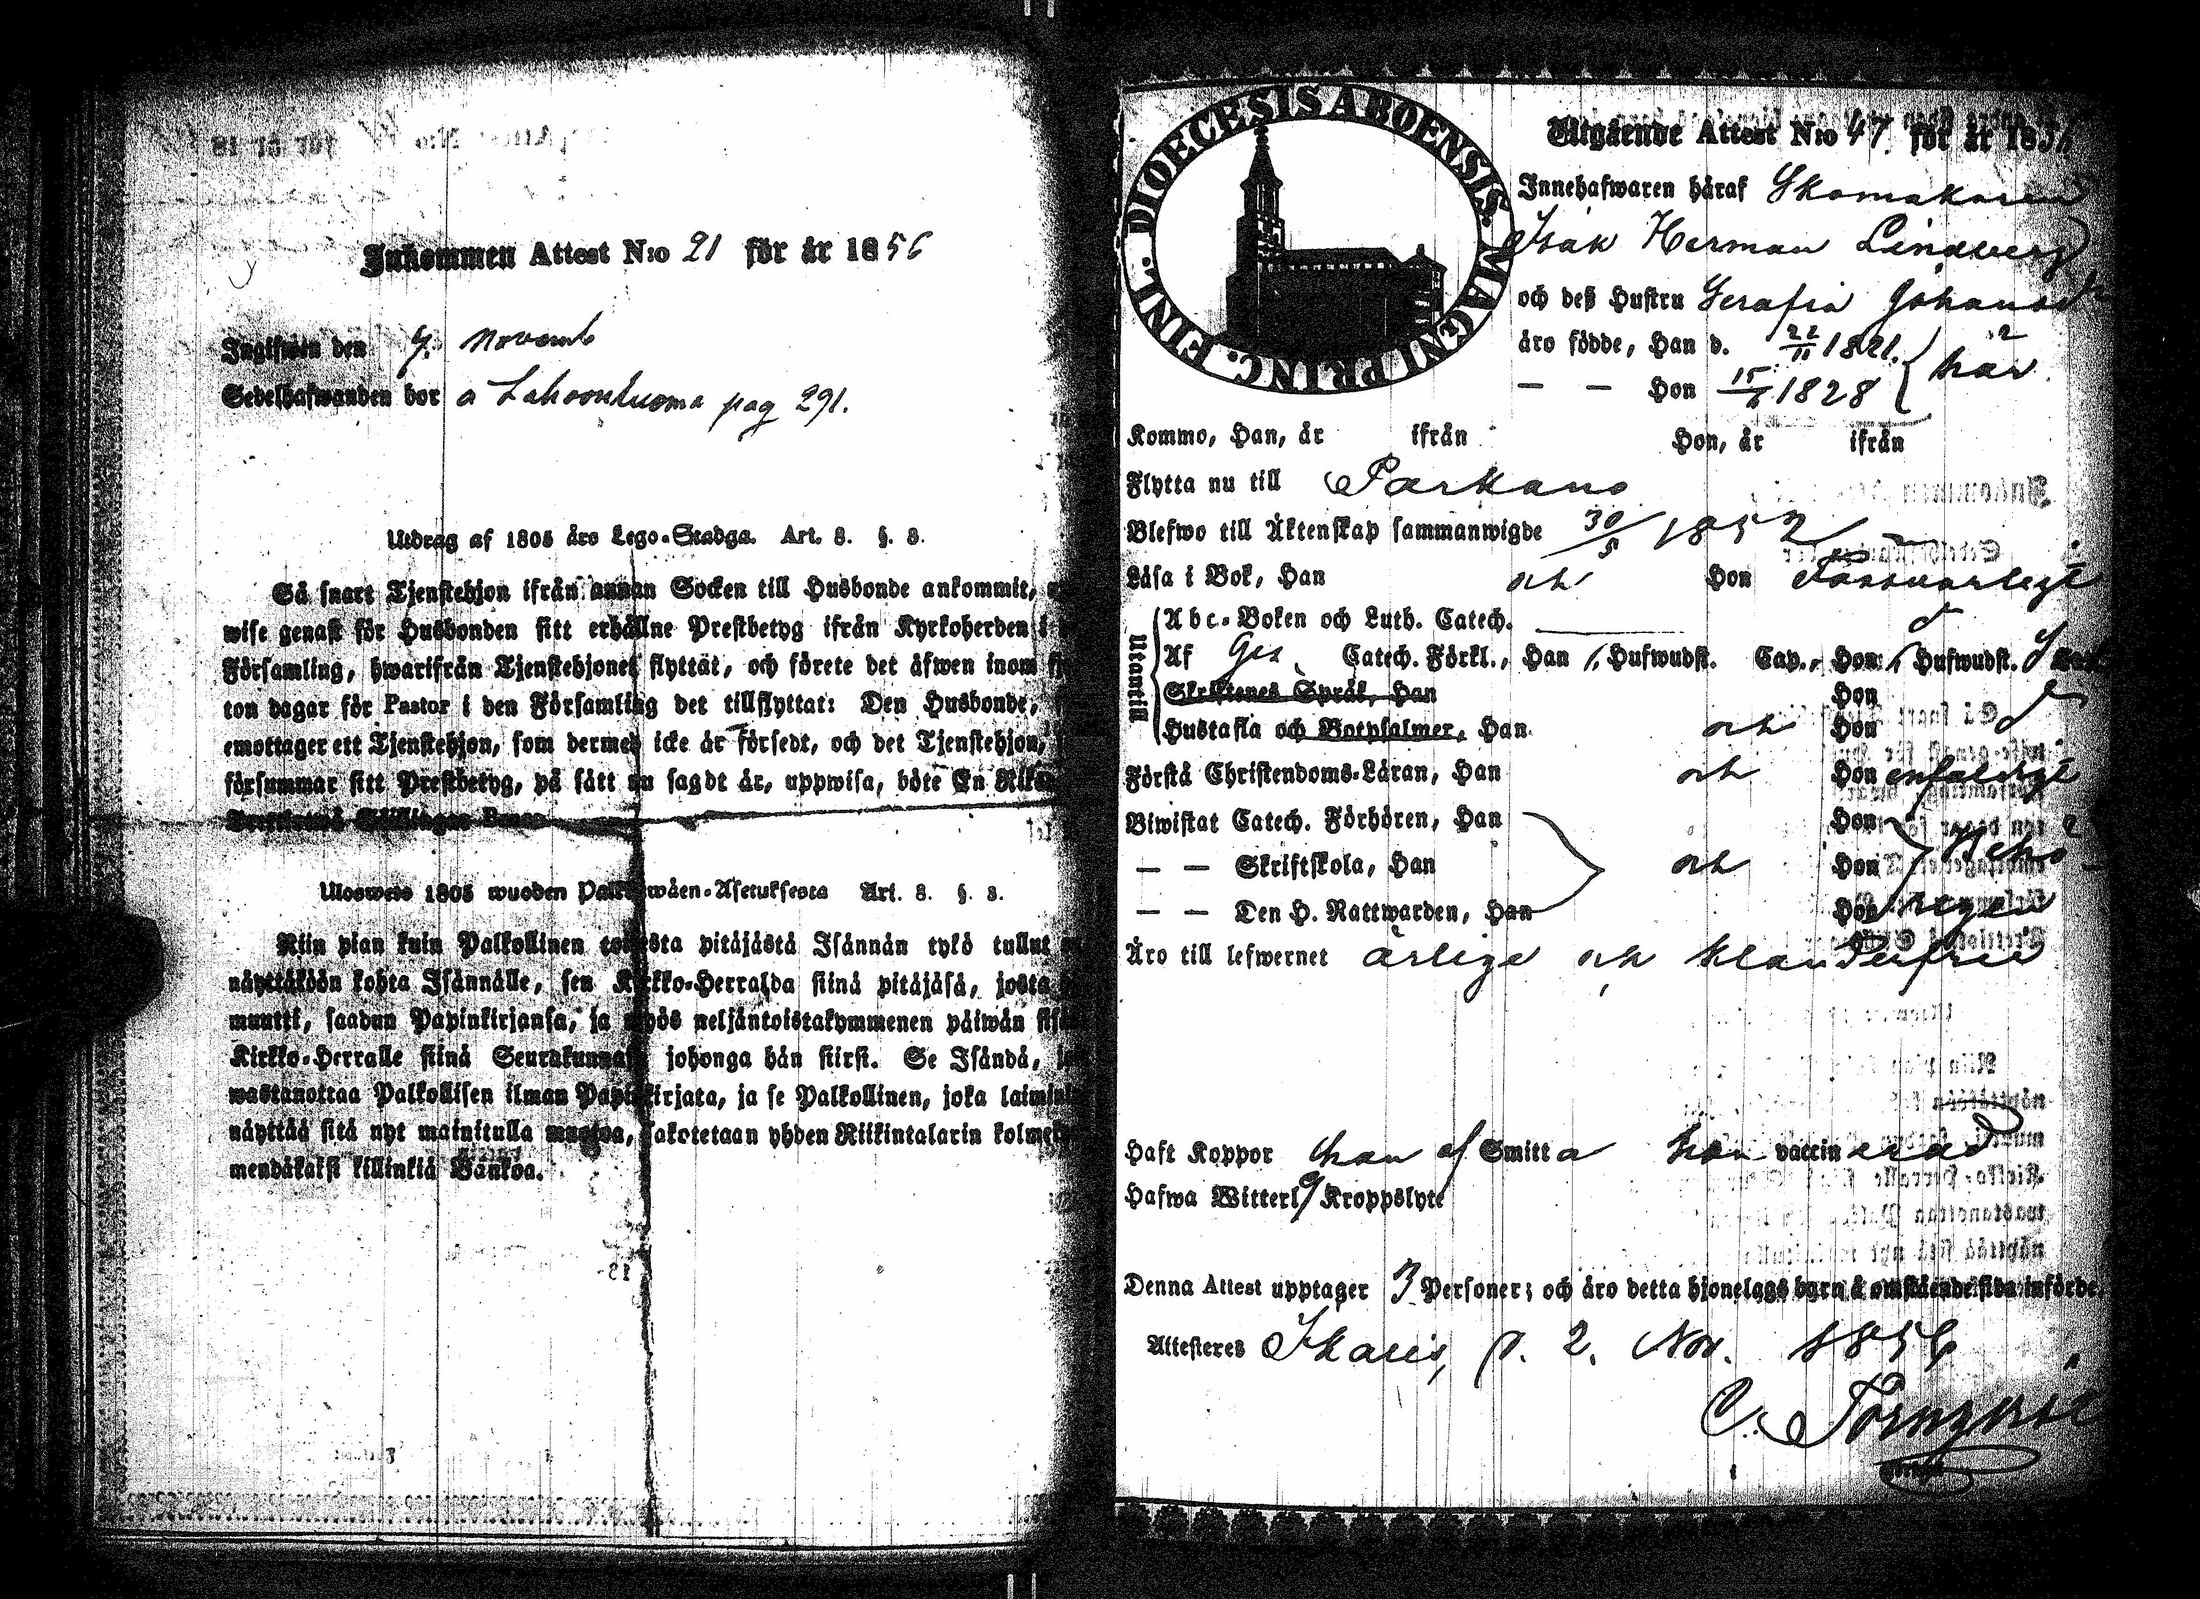 Inkommen Attest N:o 21 för år 1856
Ingifwen den 7. Novemb
Sedelhafwanden bor å Lahoonluoma pag 291.
Utdrag af 1805 års Lego-Stadga. Art. 8. §. 3.
Så snart Tjenstehjon ifrån annan Socken till Husbonde ankommit,
wise genast för Husbonden sitt erhållne Prestbetyg ifrån Kyrkoherden i
Församling, hwarifrån Tjenstehjonet flyttat, och förete det äfwen inom
ton dagar för Pastor i den Församling det tillflyttat: Den Husbonde,
emottager ett Tjenstehjon, som dermed icke är försedt, och det Tjenstehjon,
försummar sitt Prestbetyg, på sätt nu sagdt är, uppwisa, böte En
Ulosweto 1805 wuoden Palkkawäen-Asetuksesta Art. 8. §. 3.
Niin pian kuin Palkollinen toisesta pitäjästä Isännän tykö tullut
näyttäköön kohta Isännälle, sen Kirkko-Herralda siinä pitäjäsä, josta
muutti, saadun Papinkirjansa, ja myös neljäntoistakymmenen päiwän
Kirkko-Herralle siinä Seurakunnasa johonga hän siirsi. Se Isändä,
wastanottaa Palkollisen ilman Papinkirjata, ja se Palkollinen, joka
näyttää sitä nyt mainitulla muotoa, sakotetaan yhden Riikintalarin
mendäkaksi killinkiä Bankoa.
DIOECESIS ABOENSIS. MAGNI PRINC. FINL.
Utgående Attest N:o 47. för år 185
Innehafwaren häraf Skomakaren
Isak Herman Lindberg
och deß Hustru Serafia Johansdr
äro födde, Han d. 22/11 1821. här
— — Hon 15/6 1828
Kommo, Han, år ifrån Hon, år ifrån
Flytta nu till Parkano
Blefwo till Äktenskap sammanwigde 30/5 1852
Läsa i Bok, Han och Hon försvarligt
Utantill
Abc-Boken och Luth. Catech.
Af Catech. Förkl., Han 1. Hufwudst. Cap., Hon 1 Hufwudst.
Skriftenes Språk, Han Hon
Hustafla och Botpsalmer, Han och Hon
Förstå Christendoms-Läran, Han och Hon enfaldigt
Biwistat Catech. Förhören, Han Hon
— — Skriftskola, Han och Hon
— — Den H. Nattwarden, Han Hon
Äro till lefwernet ärlige och klanderfrie
Haft Koppor han af Smitta hon vaccinerad
Hafwa Witterl. Kroppslyte
Denna Attest upptager 3 Personer; och äro detta hjonelags barn å omstående sida införde.
Attesteres Ikalis, d. 2. Nov. 1856